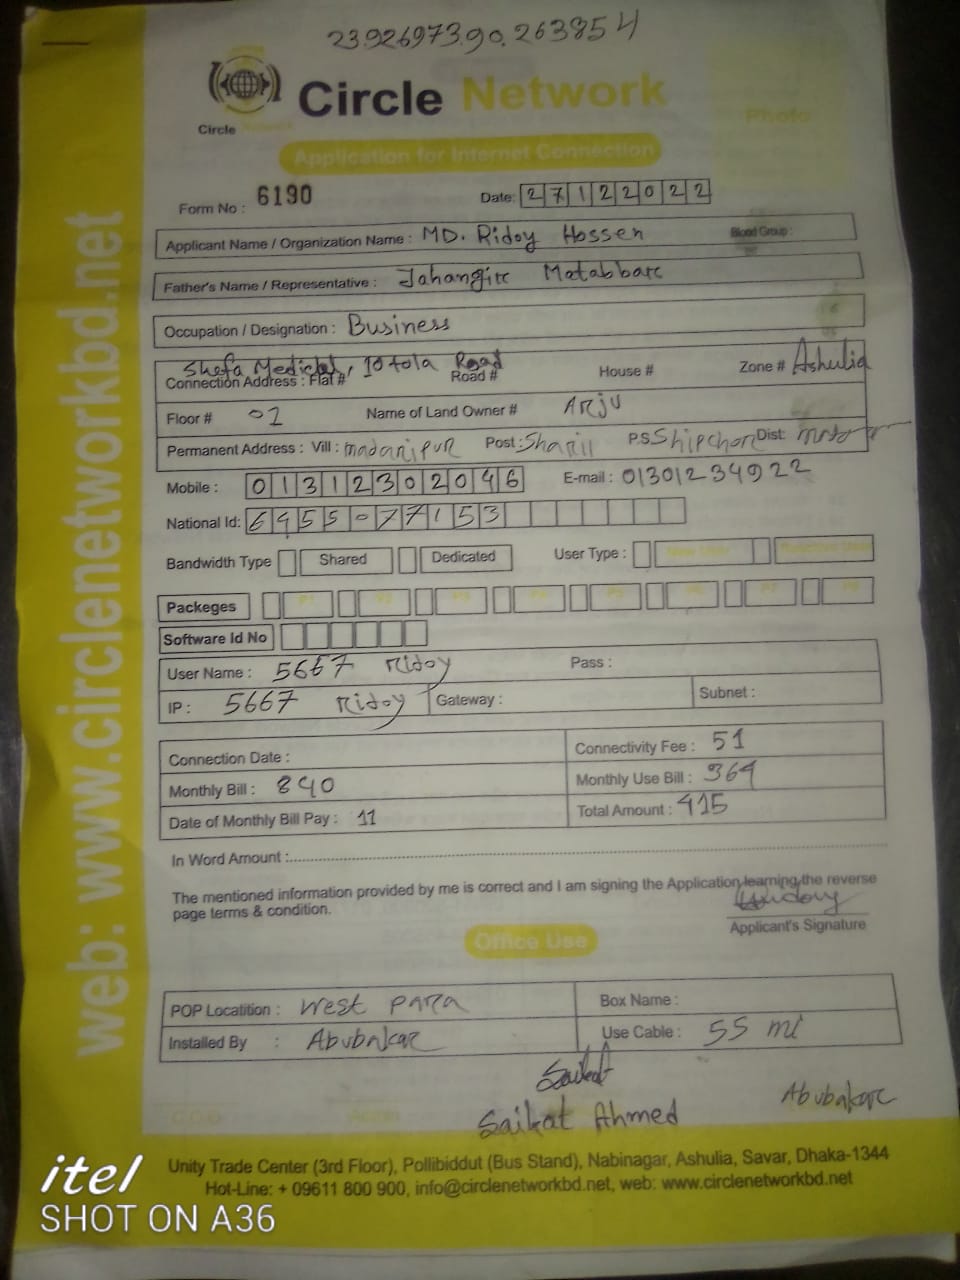 23.92697390.263854
Circle Network
Circle Network
Photo
Application for Internet Connection
Form No : 6190 Date: 27122022
Applicant Name / Organization Name : MD. Ridoy Hossen Blood Group :
Father's Name / Representative : Jahangire Matabbarc
Occupation / Designation : Business
Shefa Medical, 10 tola Road
Connection Address : Flat # Road # House # Zone # Ashulia
Floor # 01 Name of Land Owner # Arju
Permanent Address : Vill : madaripur Post : P.S. Shipchor Dist:
Mobile : 01312302046 E-mail : 01301234922
National Id: 6955077153
Bandwidth Type Shared Dedicated User Type : New User
Packeges P1 P2 P3 P4 P5 P6 P7 P8
Software Id No
User Name : 5667 Ridoy Pass :
IP : 5667 Ridoy Gateway : Subnet :
Connection Date : Connectivity Fee : 51
Monthly Bill : 840 Monthly Use Bill : 364
Date of Monthly Bill Pay : 11 Total Amount : 415
In Word Amount :
The mentioned information provided by me is correct and I am signing the Application learning the reverse
page terms & condition.
Applicant's Signature
Office Use
POP Locatition : West para Box Name :
Installed By : Abubakar Use Cable : 55 mi
Saikat
Saikat Ahmed Abubakar
C.O.O Admin
web: www.circlenetworkbd.net
Unity Trade Center (3rd Floor), Pollibiddut (Bus Stand), Nabinagar, Ashulia, Savar, Dhaka-1344
Hot-Line: + 09611 800 900, info@circlenetworkbd.net, web: www.circlenetworkbd.net
itel
SHOT ON A36